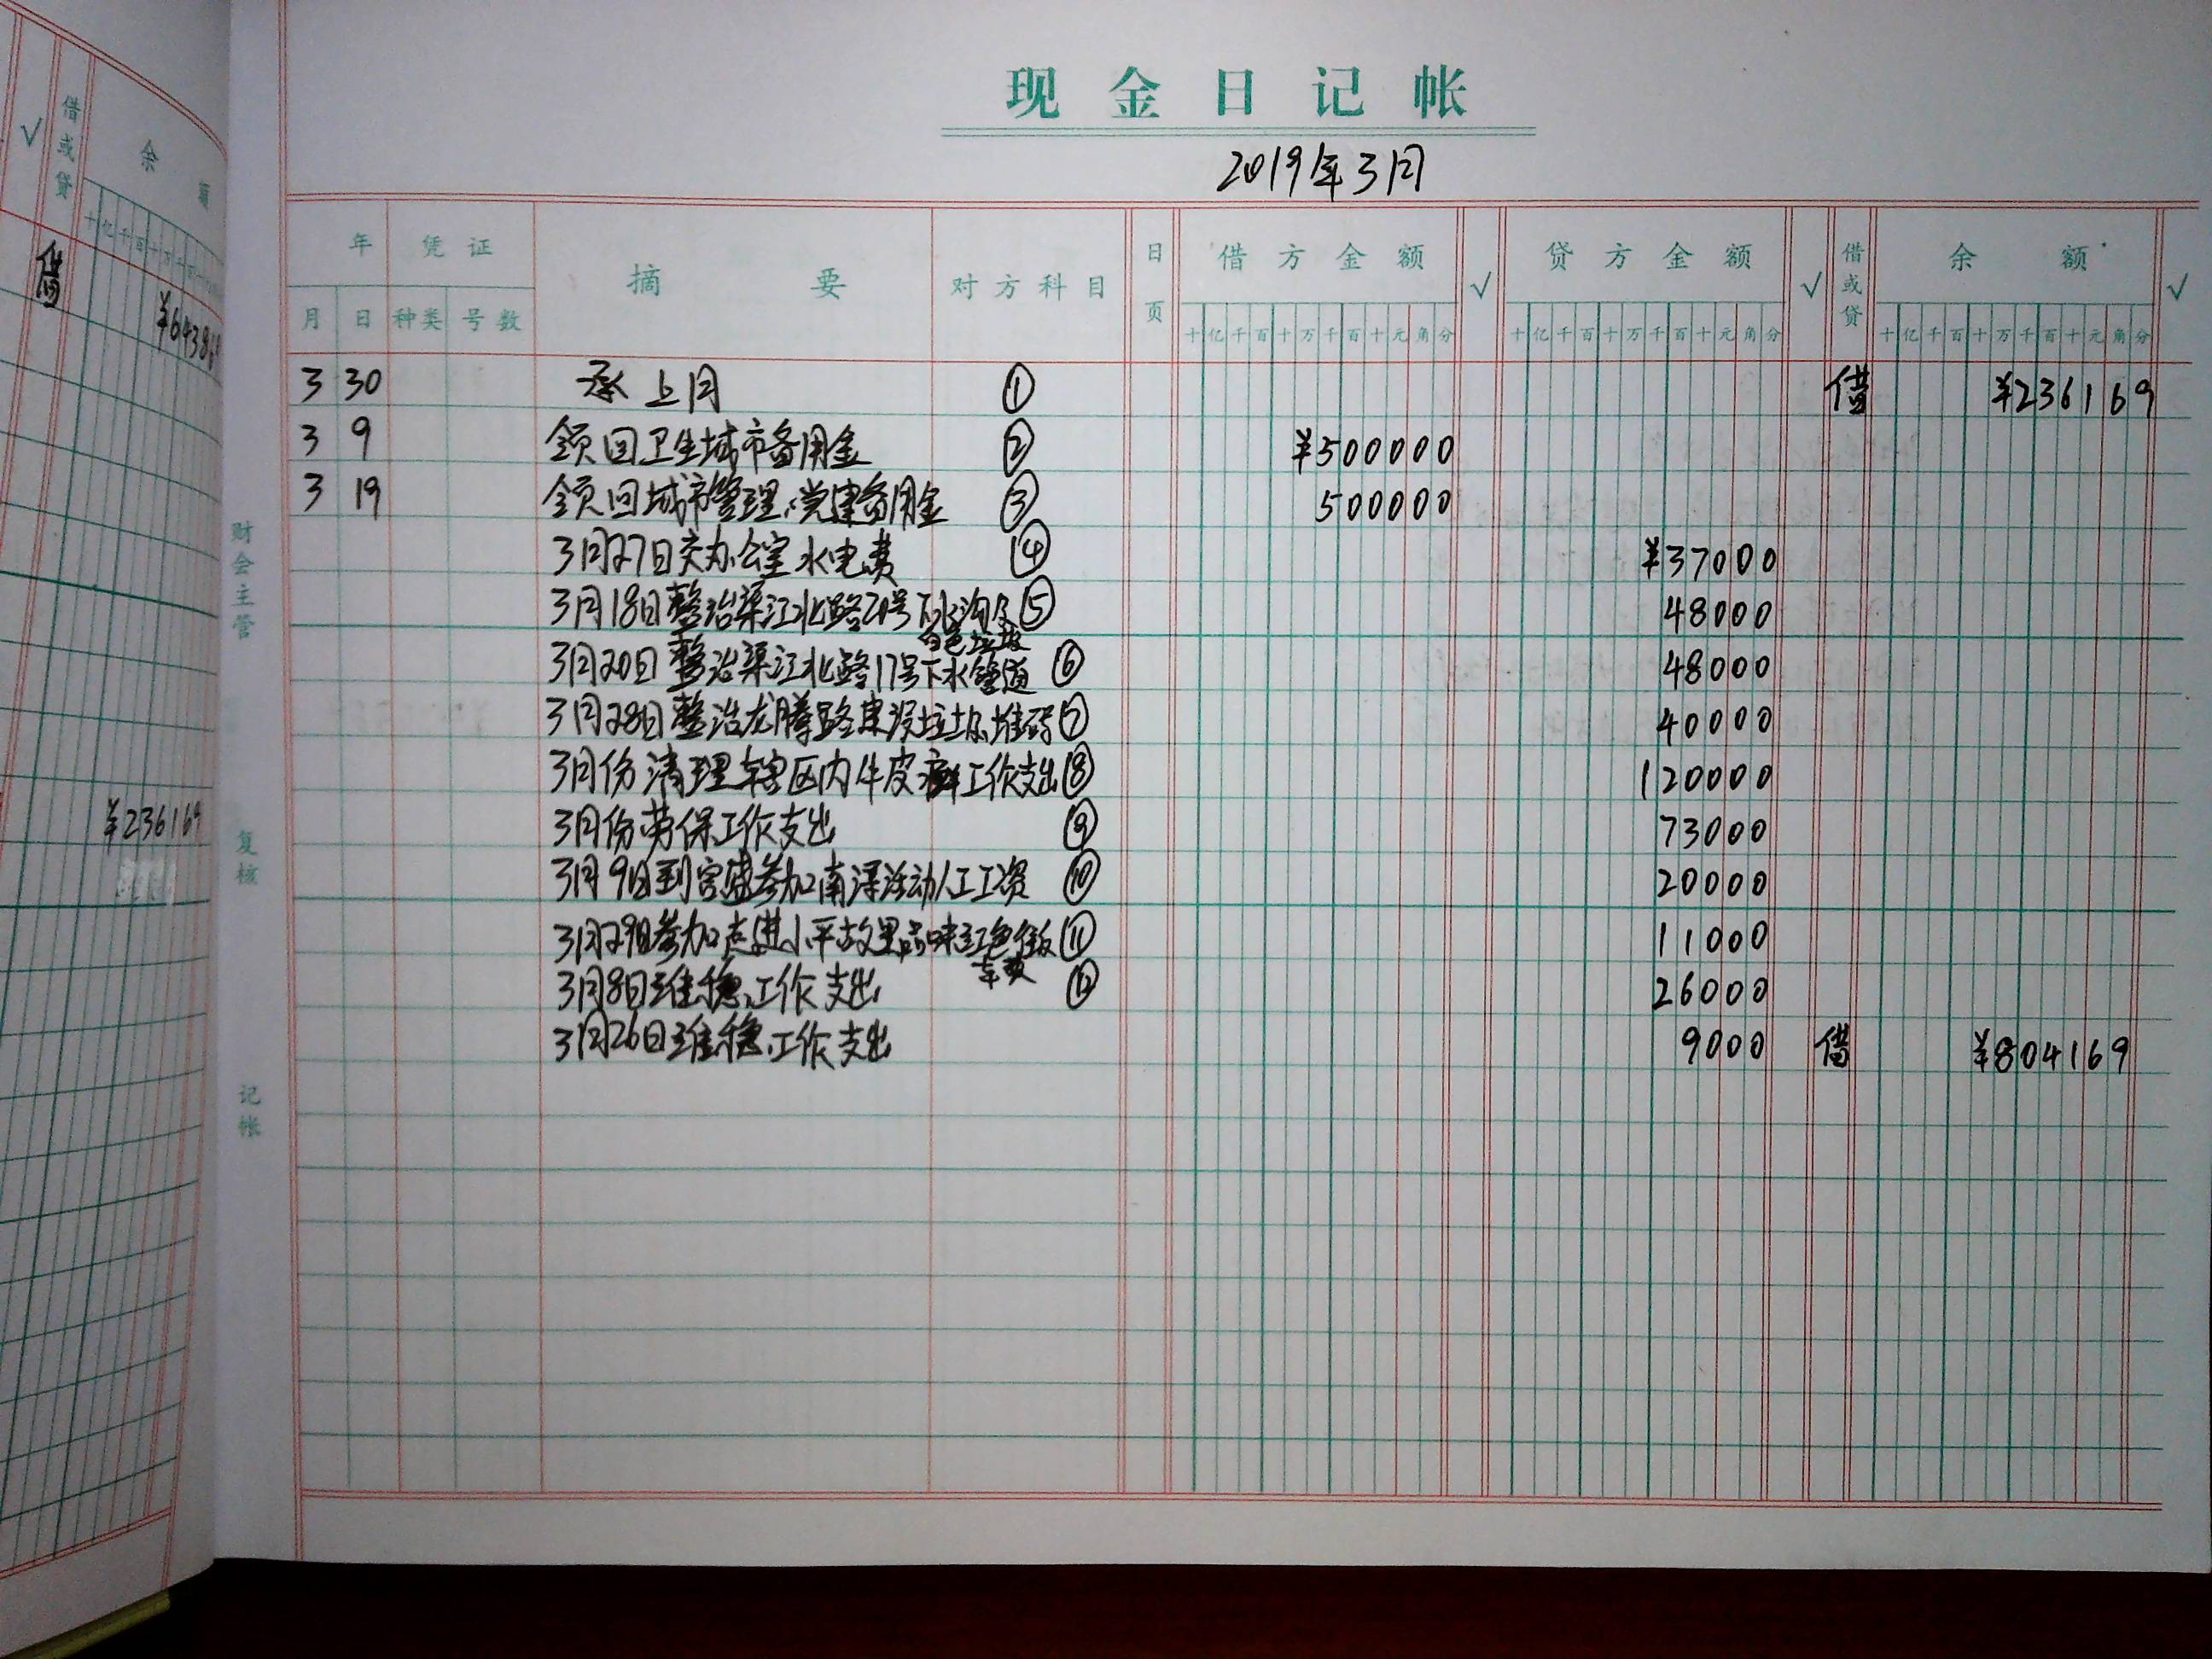 现金日记帐
2019年3月
年 凭证 摘要 对方科目 日页 借方金额 √ 贷方金额 √ 借或贷 余额 √
月 日 种类 号数 十亿千百十万千百十元角分 十亿千百十万千百十元角分 十亿千百十万千百十元角分
3 30 承上月 ① 借 ¥236169
3 9 领回卫生城市备用金 ② ¥500000
3 19 领回城市管理、党建备用金 ③ 500000
3月27日交办公室水电费 ④ ¥37000
3月18日整治渠江北路21号下水沟及 ⑤ 48000
白色垃圾
3月20日整治渠江北路17号下水管道 ⑥ 48000
3月28日整治龙腾路建渣垃圾堆砖 ⑦ 40000
3月份清理辖区内牛皮癣工作支出 ⑧ 120000
3月份劳保工作支出 ⑨ 73000
3月9日到官盛参加南浔活动人工工资 ⑩ 20000
3月29日参加走进小平故里品味红色 ⑪ 11000
车费
3月8日维稳工作支出 ⑫ 26000
3月26日维稳工作支出 9000 借 ¥804169
财会主管
复核
记帐
√ 借或贷 余额
十亿千百十万千百十
借
¥6438
¥236169